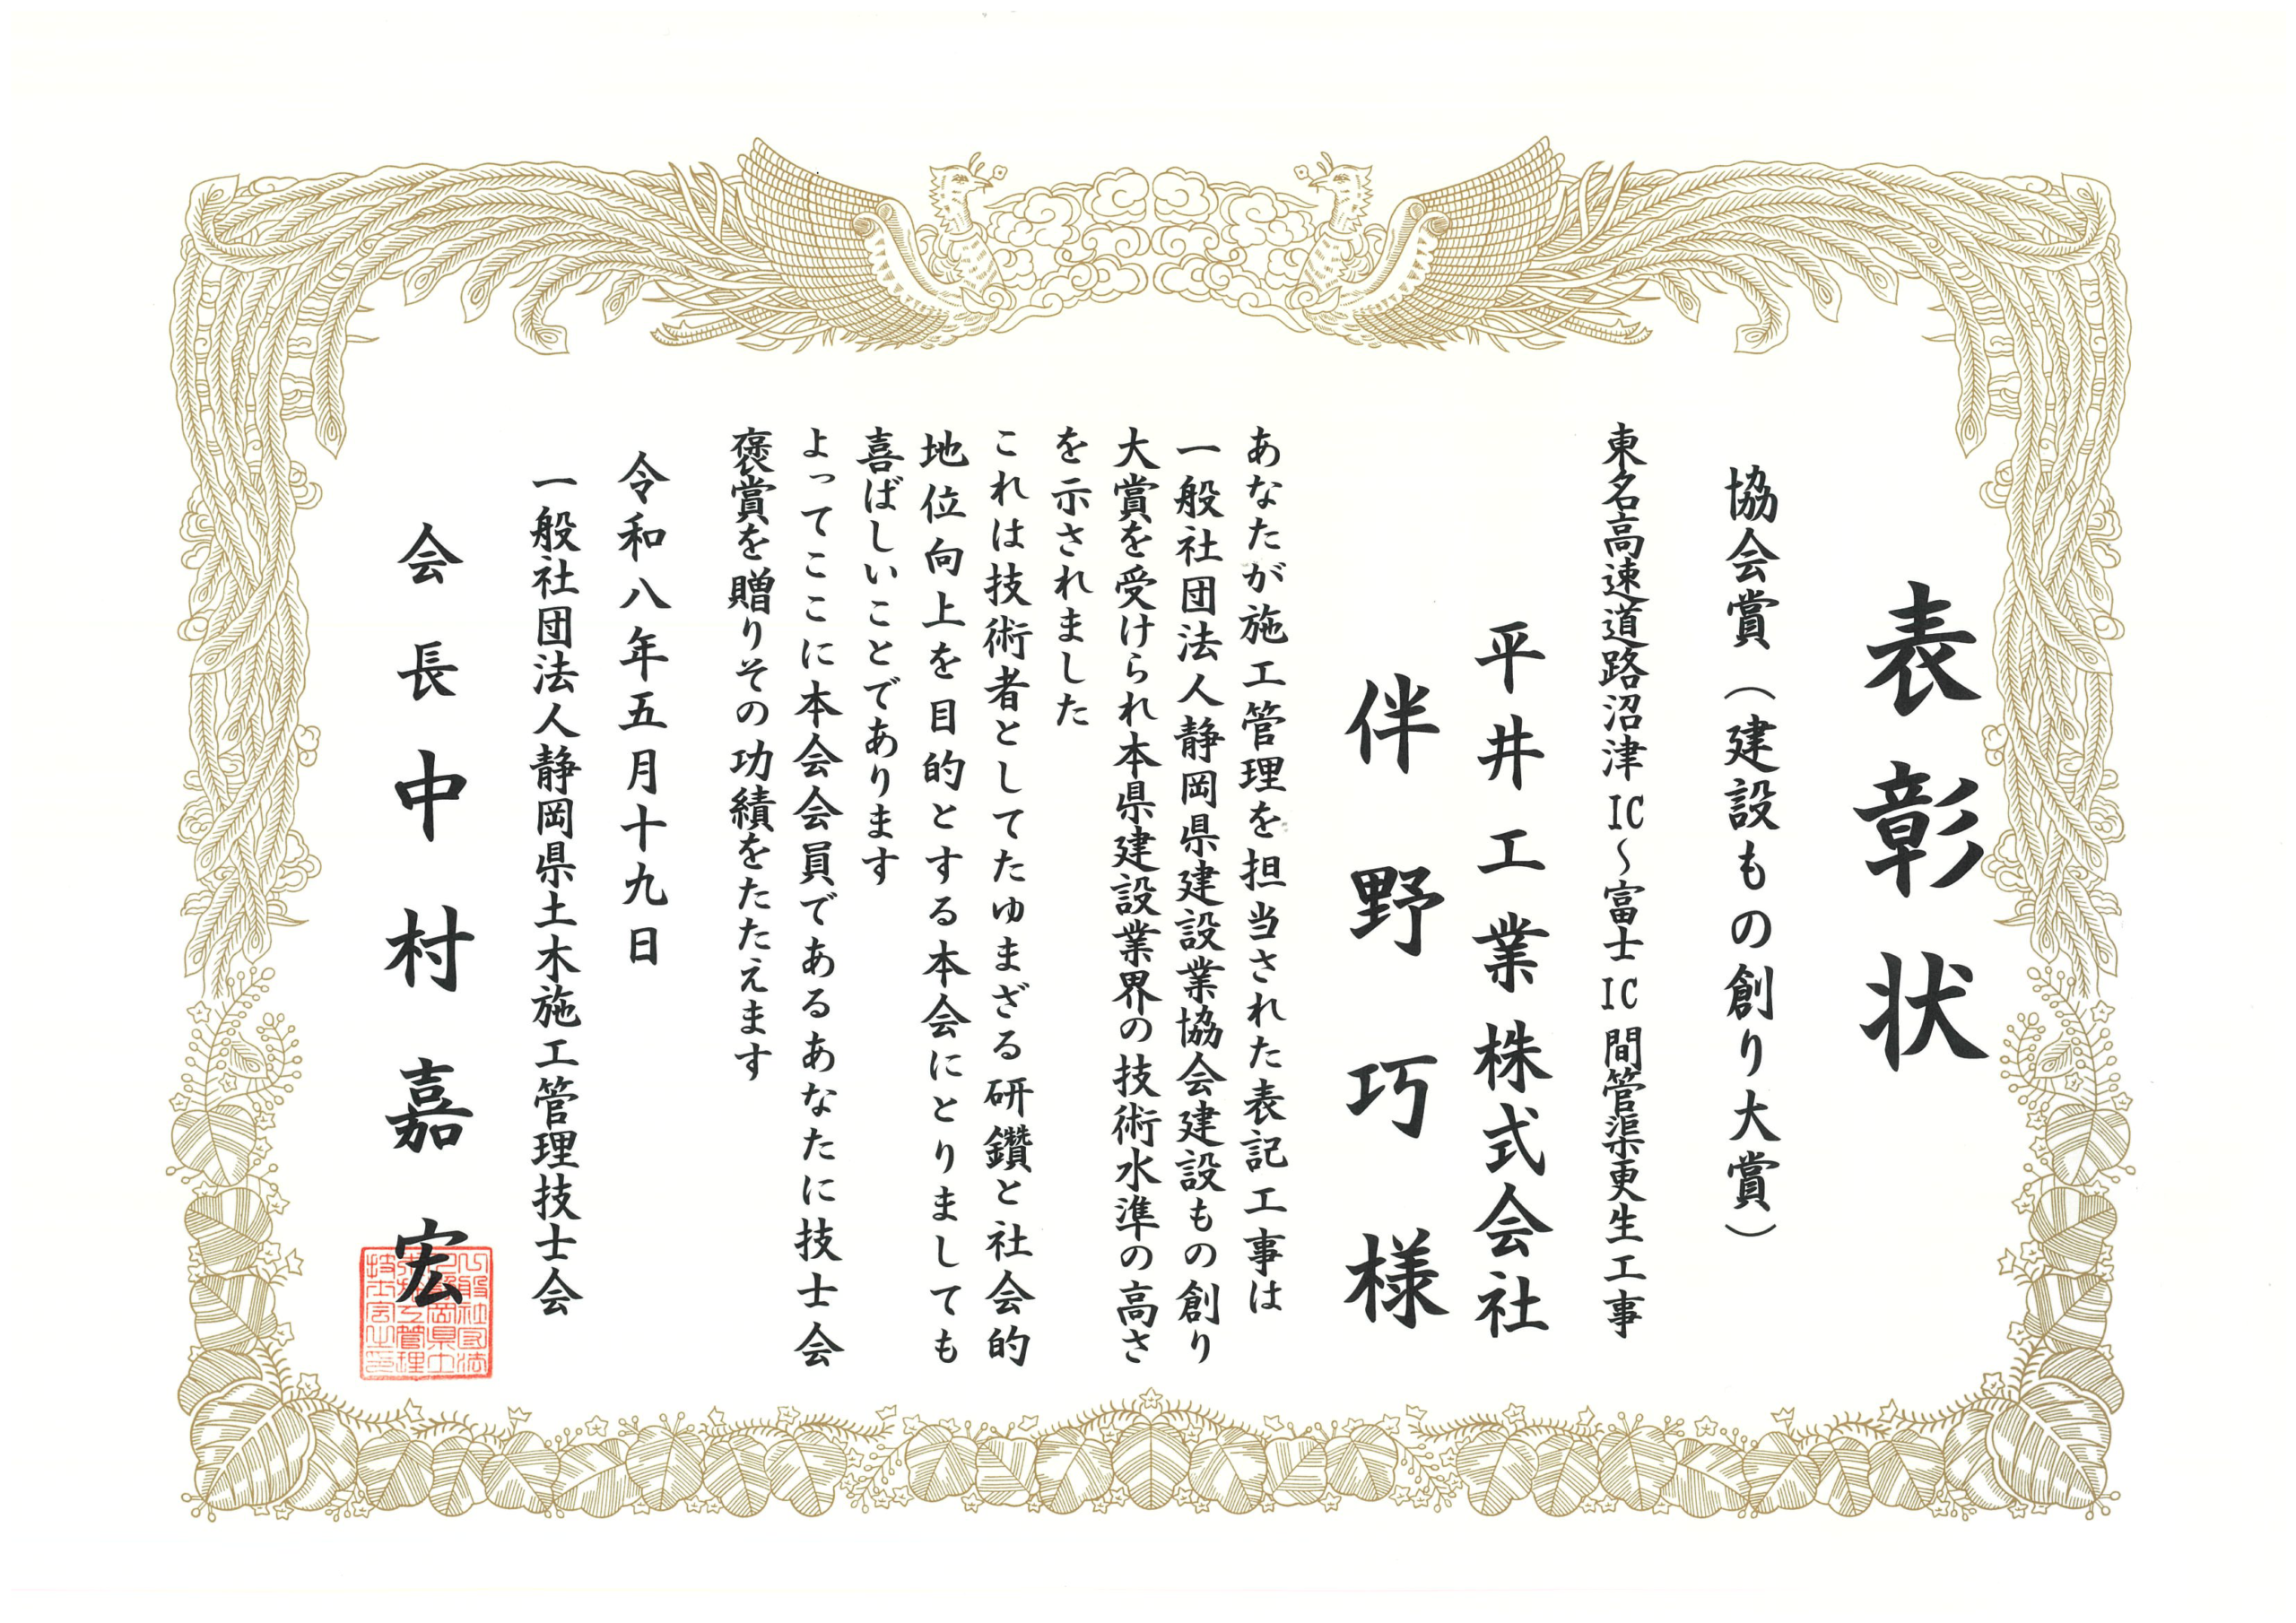 表彰状
協会賞（建設もの創り大賞）
東名高速道路沼津IC～富士IC間管渠更生工事
平井工業株式会社
伴野巧様
あなたが施工管理を担当された表記工事は
一般社団法人静岡県建設業協会建設もの創り
大賞を受けられ本県建設業界の技術水準の高さ
を示されました
これは技術者としてたゆまざる研鑽と社会的
地位向上を目的とする本会にとりましても
喜ばしいことであります
よってここに本会会員であるあなたに技士会
褒賞を贈りその功績をたたえます
令和八年五月十九日
一般社団法人静岡県土木施工管理技士会
会長中村嘉宏